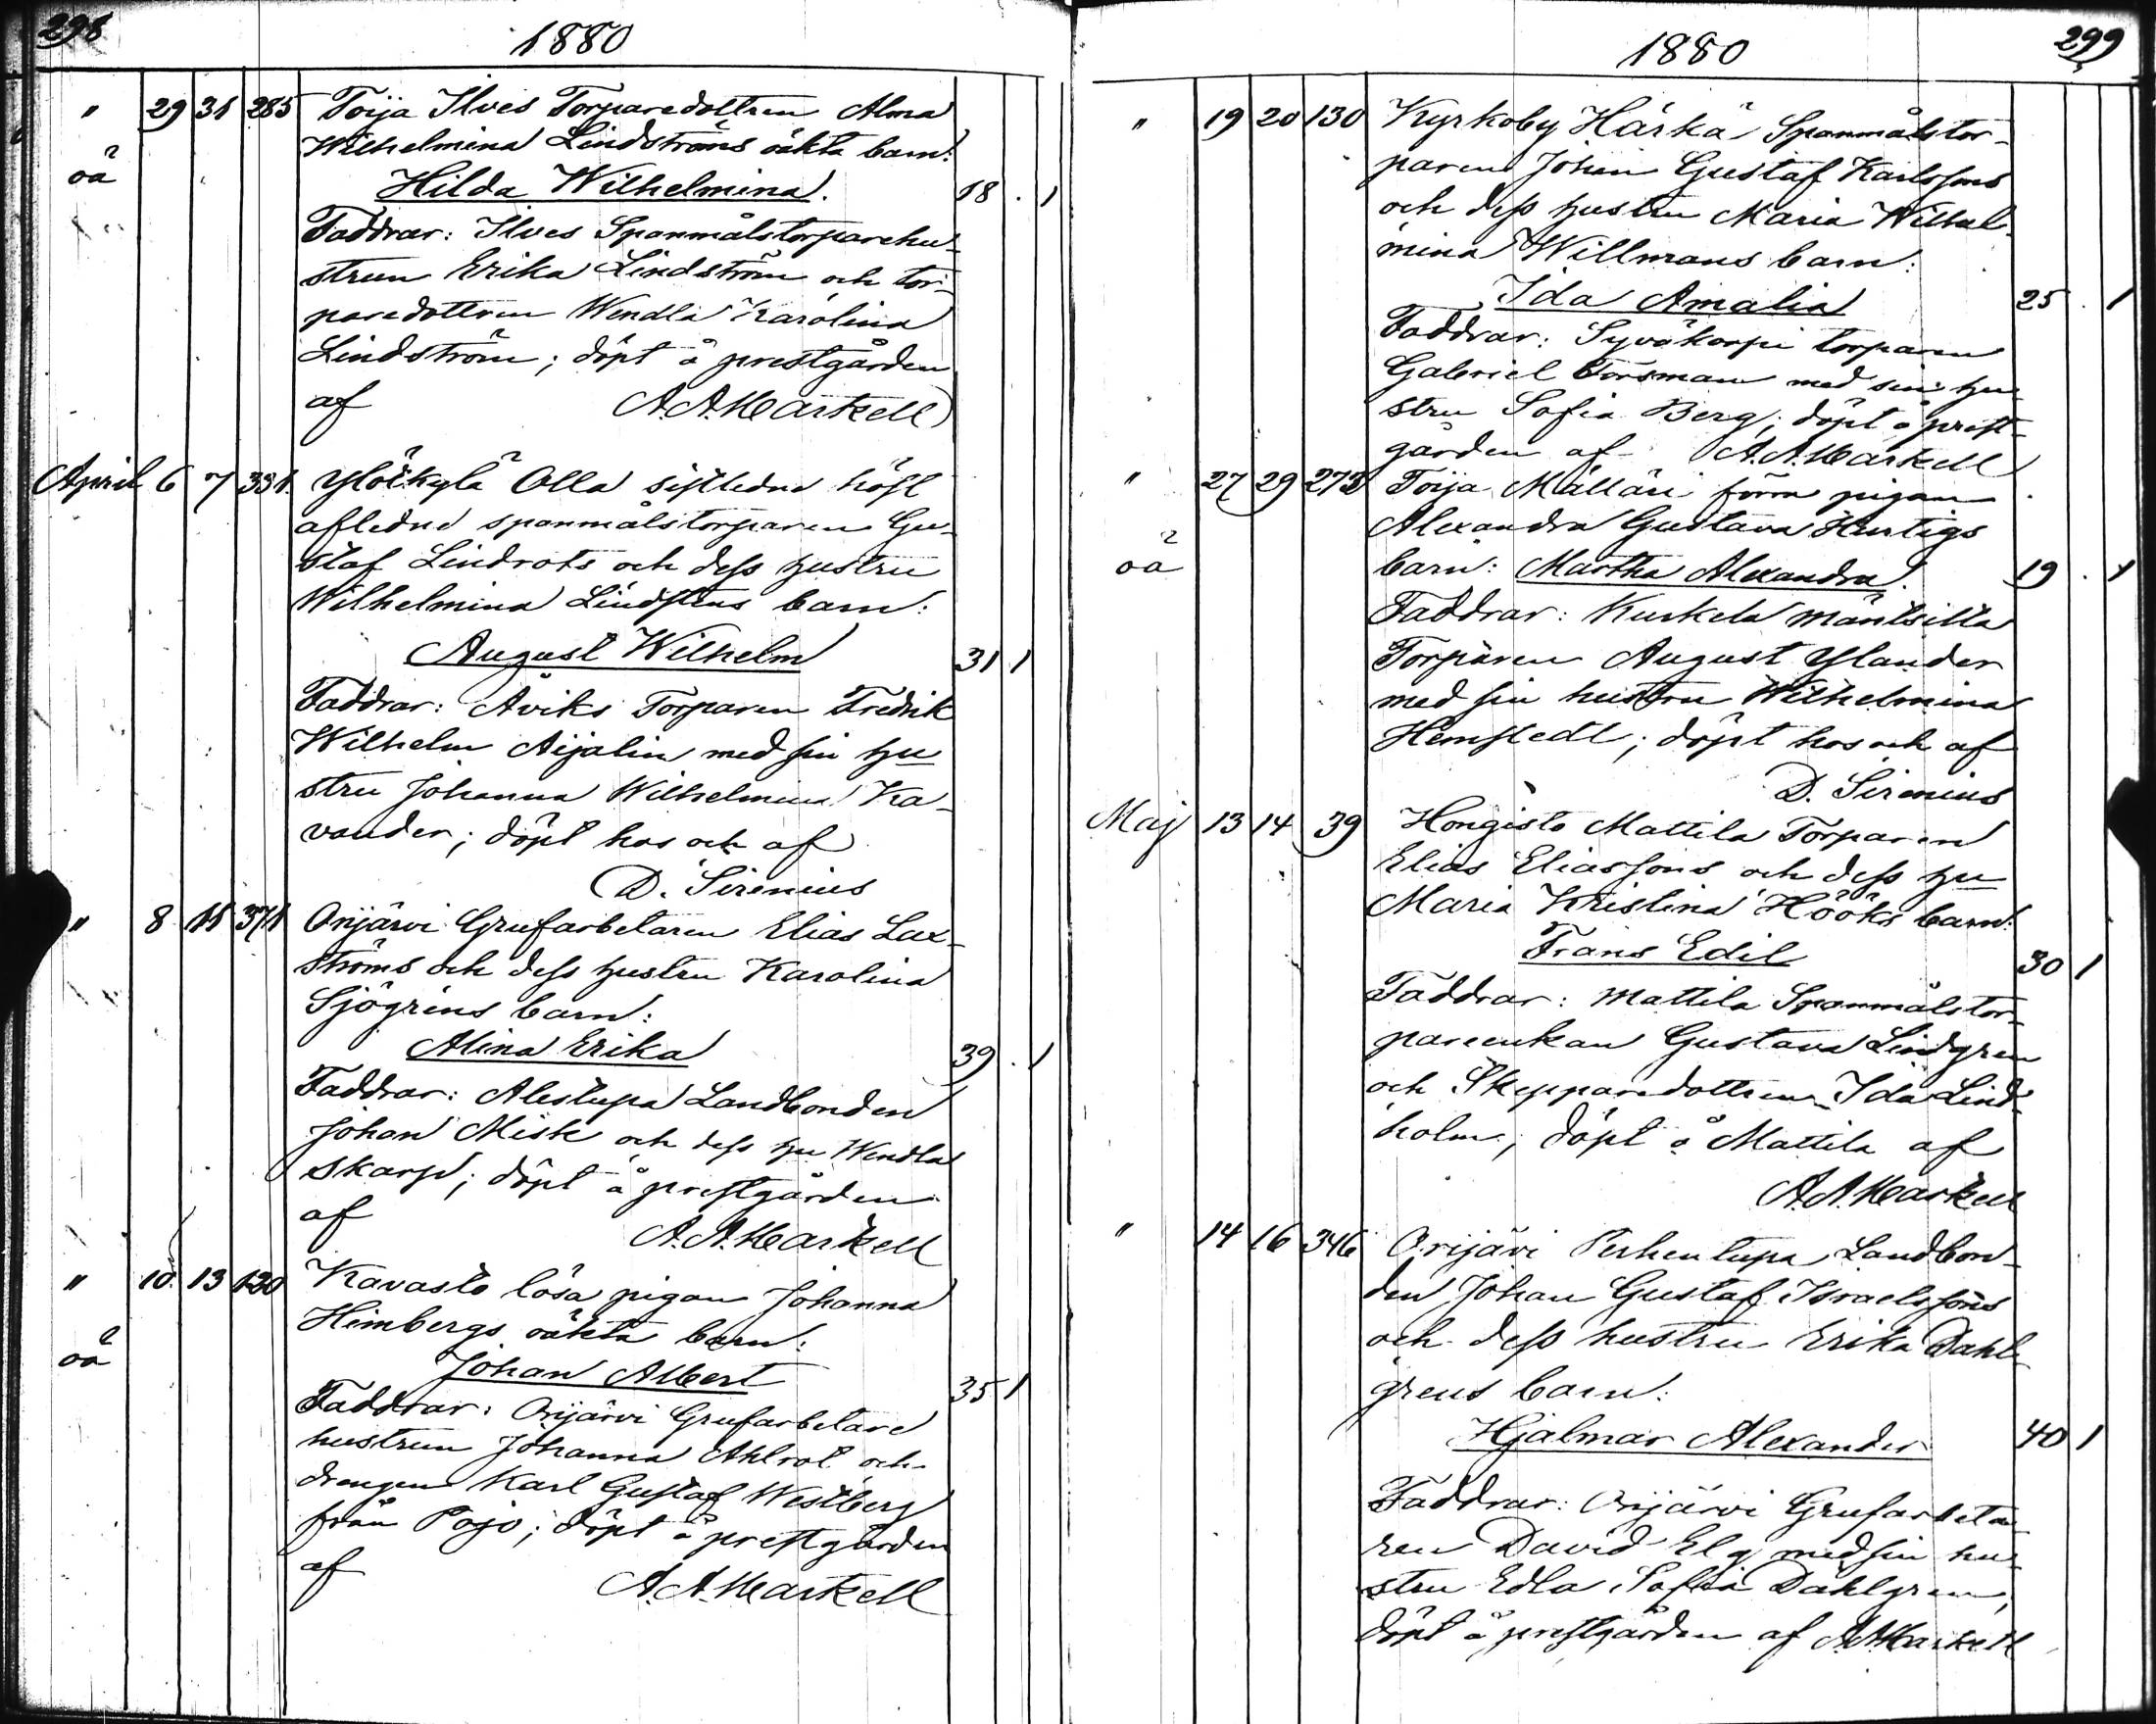 298
1880
" 29 31 285 Toija Ilves Torparedottren Alma
oä Wilhelmina Lindströms oäkta barn:
Hilda Wilhelmina. 18 . 1
Faddrar: Ilves Spanmålstorparehu-
strun Erika Lindström och tor-
paredottren Wendla Karolina
Lindström; döpt å prestgården
af A. A. Markell
April 6 7 331. Ylökylä Olla sistledne höst
aflidne spanmålstorparen Gu-
staf Lindrots och dess hustru
Wilhelmina Lindstens barn:
August Wilhelm 31 1
Faddrar: Åviks Torparen Fredrik
Wilhelm Aijalin med sin hu
stru Johanna Wilhelmina Ka-
vander; döpt hos och af
D. Sirenius
" 8 11 371 Orijärvi Grufarbetaren Elias Lax-
ströms och dess hustru Karolina
Sjögrens barn:
Alina Erika 39 . 1
Faddrar: Alestupa Landbonden
Johan Misk och dess hu Wendla
Skarp; döpt å prestgården
af A. A. Markell
" 10 13 120 Kavasto lösa pigan Johanna
oä Himbergs oäkta barn:
Johan Albert 35 1
Faddrar: Orijärvi Grufarbetare
hustrun Johanna Ahlrot och
drengen Karl Gustaf Westberg
från Pojo; döpt å prestgården
af A. A. Markell
299
1880
" 19 20 130 Kyrkoby Härkä Spanmålstor-
paren Johan Gustaf Karlssons
och dess hustru Maria Wilhel-
mina Willmans barn:
Ida Amalia 25 . 1
Faddrar: Syväkorpi torparen
Gabriel Forsman med sin hu-
stru Sofia Berg; döpt å prest-
gården af A. A. Markell
" 27 29 273 Toija Mälläri förra pigan
Alexandra Gustava Hurtigs
oä barn: Martha Alexandra. 19 . 1
Faddrar: Kurkela Mäntsilla
Torparen August Ylander
med sin hustru Wilhelmina
Hemstedt; döpt hos och af
D. Sirenius
Maj 13 14 39 Hongisto Mattila Torparen
Elias Eliassons och dess hu
Maria Kristina Hööks barn:
Frans Edil 30 1
Faddrar: Mattila Spanmålstor-
pareenkan Gustava Lindgren
och Skepparedottren Ida Lind-
holm; döpt å Mattila af
A. A. Markell
" 14 16 346 Orijärvi Perhentupa Landbon-
den Johan Gustaf Israelssons
och dess hustru Erika Dahl-
grens barn:
Hjalmar Alexander 40 1
Faddrar: Orijärvi Grufarbeta-
ren David Elg med sin hu-
stru Edla Sofia Dahlgren,
döpt å prestgården af A. A. Markell